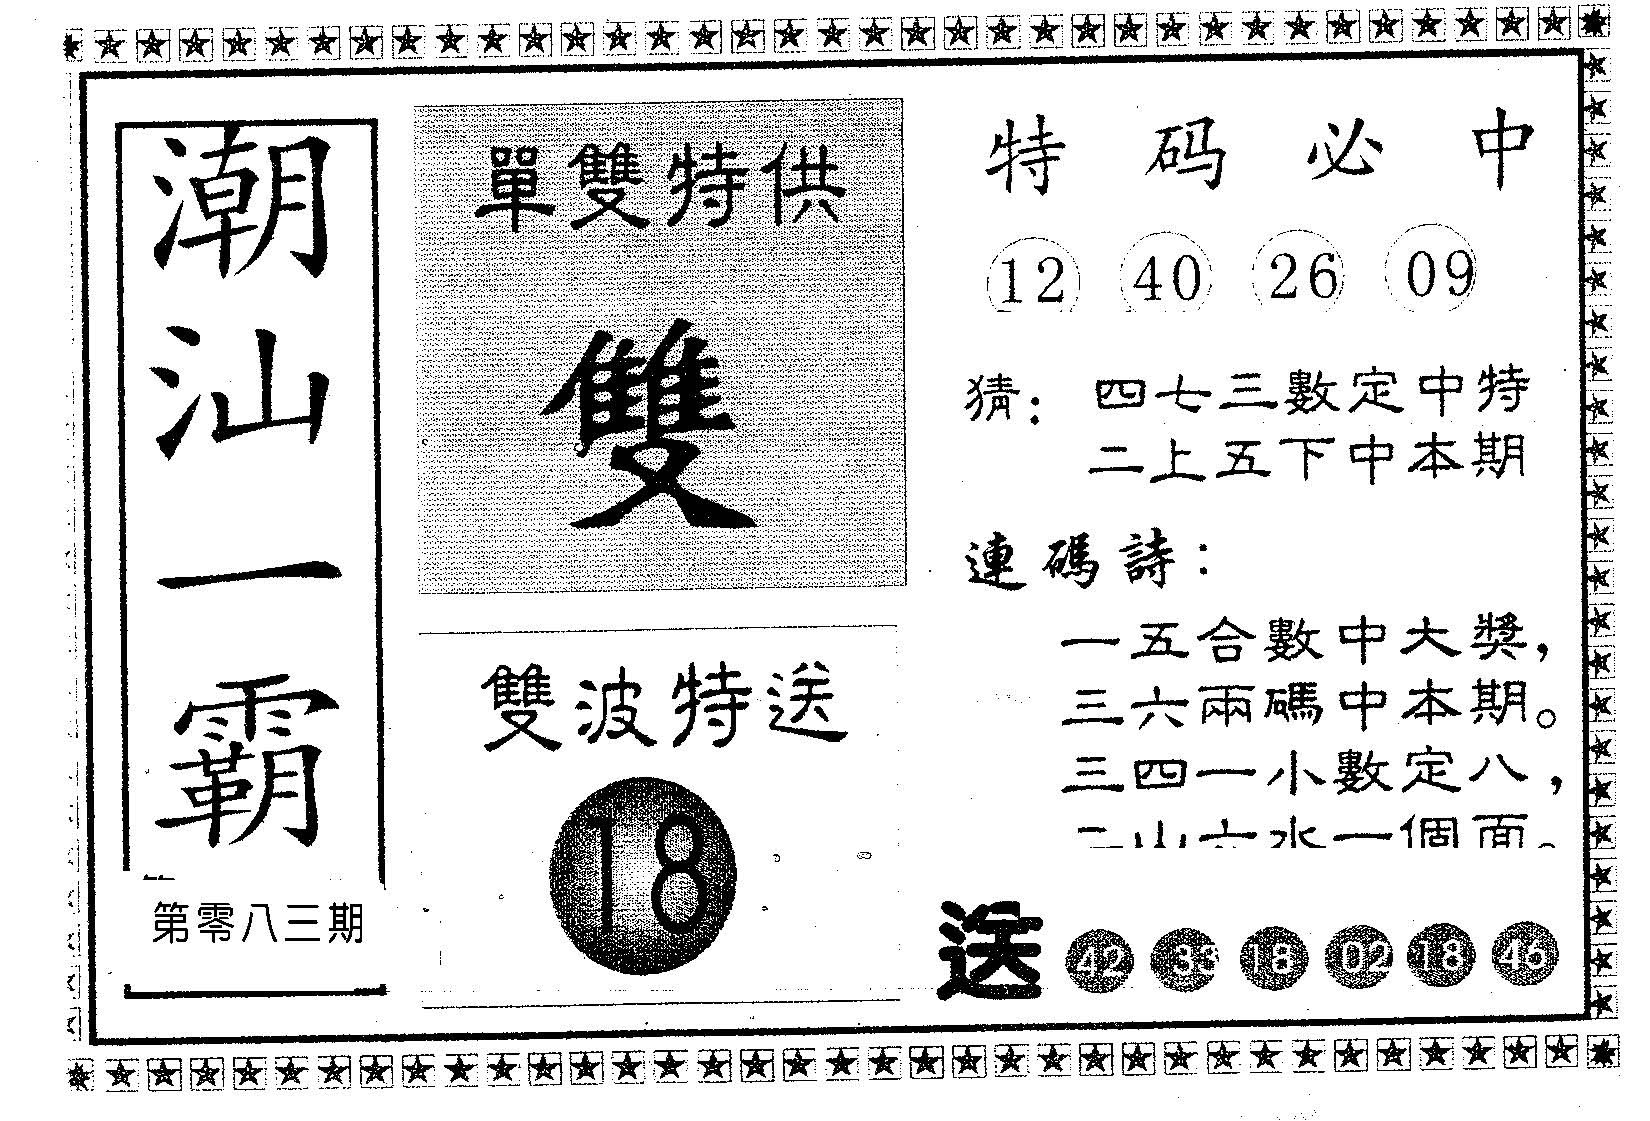 潮汕一霸
第零八三期
單雙特供
雙
雙波特送
18
特码必中
12 40 26 09
猜：四七三數定中特
二上五下中本期
連碼詩：
一五合數中大獎，
三六兩碼中本期。
三四一小數定八，
二山六水一個面。
送 42 33 18 02 18 46